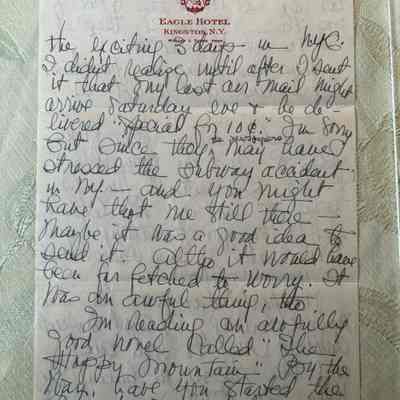 EAGLE HOTEL
KINGSTON, N.Y.
the exciting 3 days in NYC.
I didn't realize until after I sent
it that my last air mail might
arrive Saturday eve & be de-
livered "special for 10¢." I'm sorry
but since they newspapers may have
stressed the subway accident
in NY. — and you might
have that me still there —
maybe it was a good idea to
send it. altho it would have
been far fetched to worry. It
was an awful thing, tho.
I'm reading an awfully
good novel called "The
Happy Mountain" By the
way, have you started the